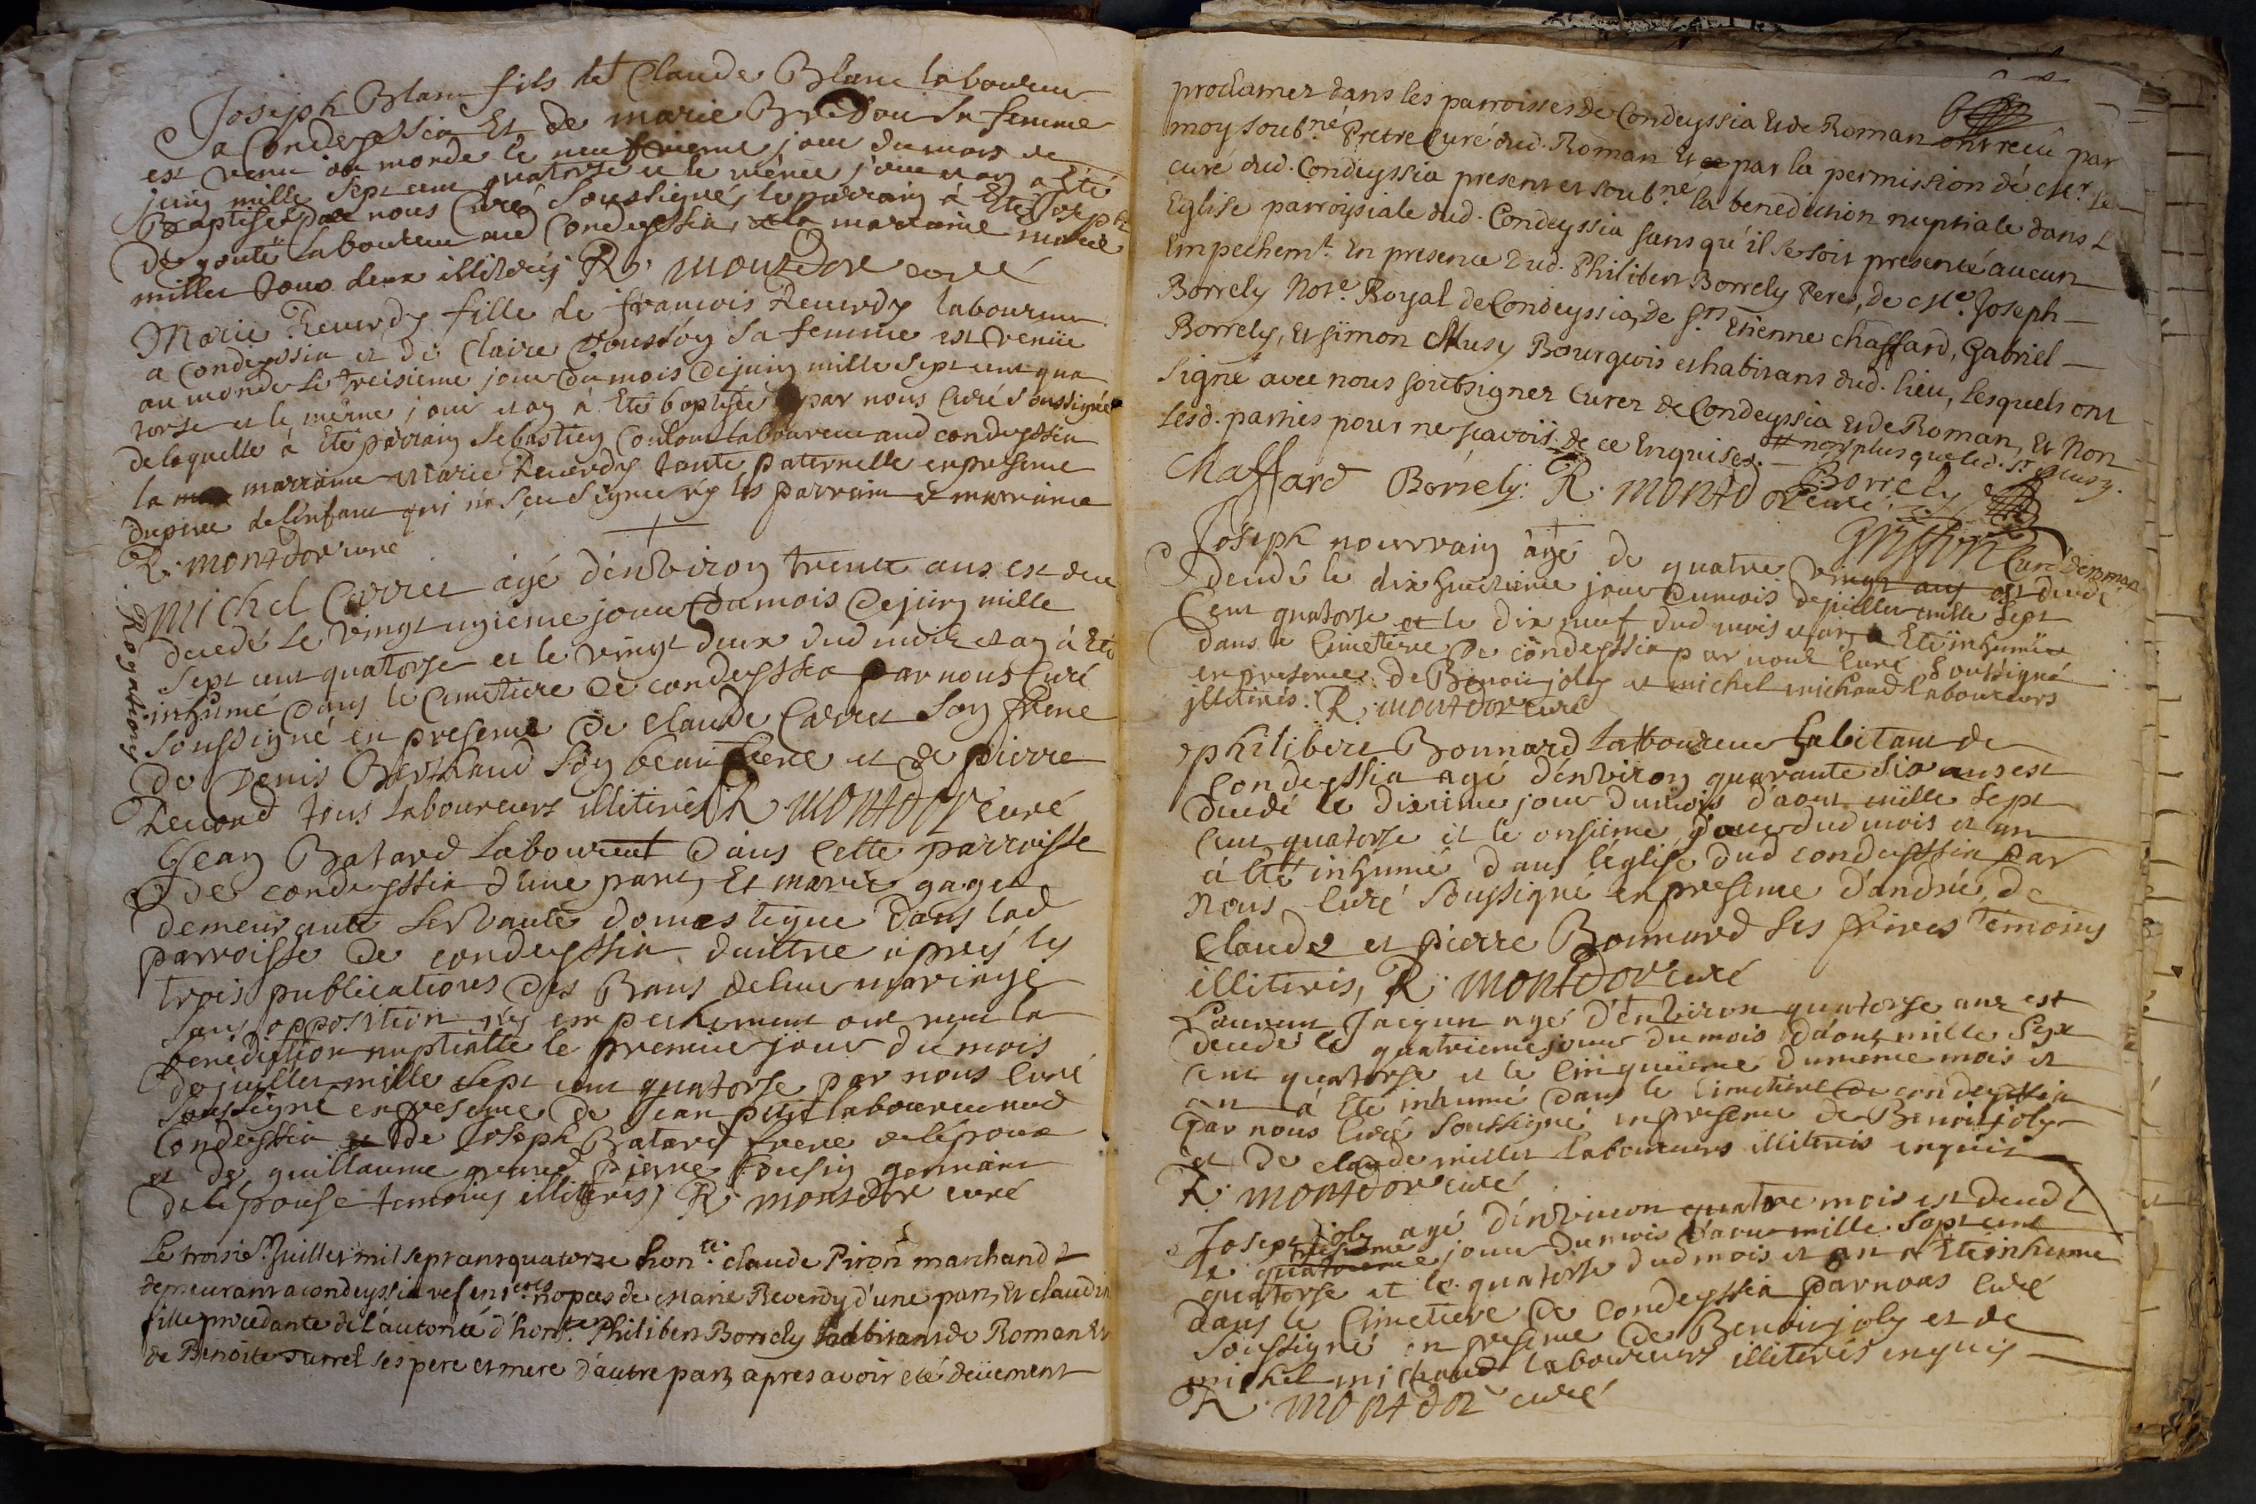 Joseph Blanc fils de Claude Blanc laboureur
a Condeyssia Et de marie Bredou sa femme
est venu au monde le neufvieme jour du mois de
juin mille sept cent quatorze et le même jour et an a Eté
Baptisé par nous Curé soussigné, le parrain à Eté Joseph
degoute laboureur aud Condeyssia, la marraine marie
millet tous deux illiterés R. montdor curé
Marie Reverdy fille de francois Reverdy laboureur
a Condeyssia et de Claire sa femme est venüe
au monde le treisieme jour du mois de juin mille sept cent qua
torse et le même jour et an à Eté baptisée par nous Curé soussigné
de laquelle à Eté parrain Sebastien Coulon laboureur aud condeyssia
la marraine Marie Reverdy tante paternelle en presence
du pere de l'enfant qui n'a sçeu signer ny les parrain et marraine
R. montdor curé
Michel Carrier agé d'environ trente ans est de
decedé le vingt unieme jour du mois de juin mille
sept cent quatorse et le vingt deux dud mois et an à Eté
inhumé dans le Cimetiere de condeyssia par nous Curé
soussigné en presence de Claude Carrier son frere
de Denis Berthaud son beau frere et de pierre
Renond tous laboureurs illiterés R. montdor curé
Rogations
Jean Batard laboureur dans cette parroisse
de condeyssia d'une part, Et marie gaget
demeurante servante domestique dans lad
parroisse de condeyssia d'autre apres les
trois publications des Bans de leur mariage
sans opposition ny empechement ont receu la
benediction nuptialle le premier jour du mois
de juillet mille sept cent quatorse par nous Curé
soussigné en presence de Jean petit laboureur aud
Condeyssia et de Joseph Batard frere de l'époux
et de guillaume pierre Cousin germain
de l'épouse temoins illiterés R. montdor curé
Le troisie. Juillet mil sept cans quatorze hon.te claude Piron marchand
demeurant a condeyssia vef en 1.eres nopces de Marie Reverdy d'une part, Et claudin
fille procedante de l'autorité d'hon.te Philibert Borrely habitant de Roman Et
de Benoite Surrel ses pere et mere d'autre part apres avoir eté deüement
proclamez dans les parroisses de Condeyssia Et de Roman ont receû par
moy soub.né Pretre Curé dud. Roman Et par la permission de Mr. le
curé dud. Condeyssia present et soub.né la benediction nuptiale dans L
Eglise parroyssiale dud. Condeyssia sans qu'il se soit presenté aucun
Empechem.t En presence dud. Philibert Borrely Pere, de Me. Joseph
Borrely Not.e Royal de Condeyssia, de Sr. Etienne chaffard, Gabriel
Borrely, Et Simon Musy Bourgeois et habitans dud. lieu, lesquels ont
signé avec nous soubsignez Curez de Condeyssia Et de Roman, Et Non
lesd. parties pour ne sçavoir de ce Enquises. # non plus que led. Sr. Musy.
Chaffard Borrely R. montdor curé Borrely
Griffon Curé de Roman
Joseph nourrain agé de quatre vingt ans est decedé
decedé le dix huictieme jour du mois de juillet mille sept
Cent quatorse et le dix neuf dud mois et an a Eté inhumée
dans le Cimetiere de condeyssia par nous Curé soussigné
en presence de Benoit joly et michel michaud laboureurs
illiterés. R. montdor curé
philibert Bonnard laboureur habitant de
Condeyssia agé d'environ quarante six ans est
decedé le dixieme jour du mois d'aout mille sept
cent quatorse et le onsieme jour dud mois et an
à Eté inhumé dans l'église dud condeyssia par
nous Curé soussigné en presence d'andré, de
Claude et pierre Bonnard ses freres temoins
illiterés, R. montdor curé
Laurent Jacquet agé d'environ quatorse ans est
decedé le quatrieme jour du mois d'aout mille sept
cent quatorse et le cinquieme du même mois et
an à Eté inhumé dans le cimetiere de condeyssia
par nous Curé soussigné en presence de Benoit joly
et de claude millet laboureurs illiterés enquis
R. montdor curé
Joseph joly agé d'environ quatre mois est decedé
le treisieme jour du mois d'aout mille sept cent
quatorse et le quatorse dud mois et an a Eté inhumé
dans le Cimetiere de condeyssia par nous Curé
soussigné en presence de Benoit joly et de
michel michaud laboureurs illiterés enquis
R. montdor curé